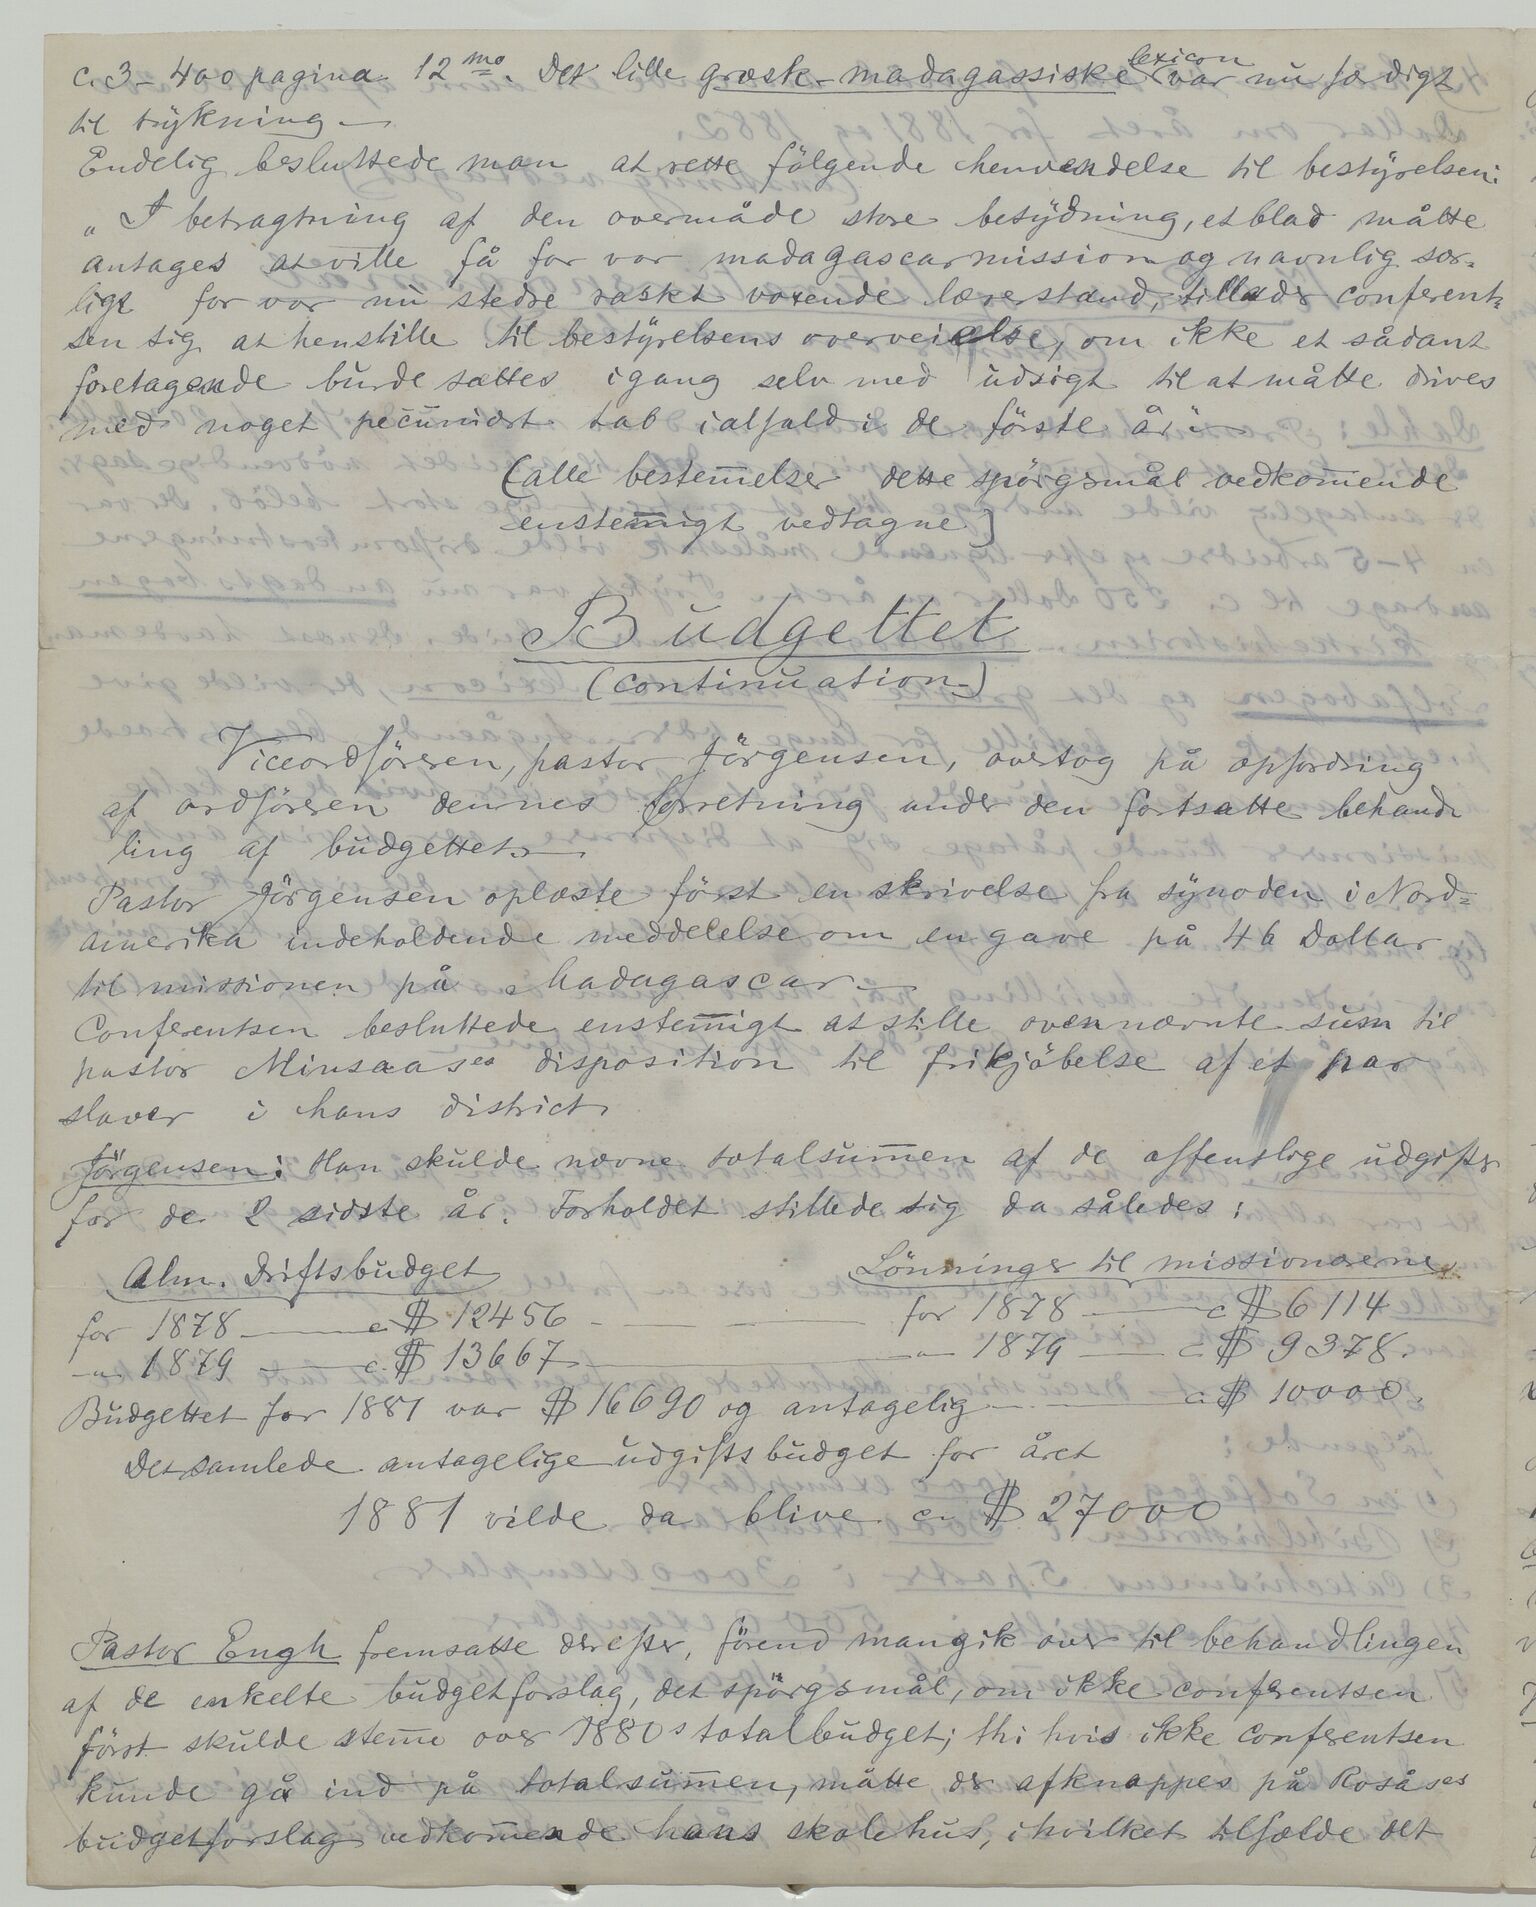 c. 3 – 400 pagina 12mo. Det lille græsk-madagassiske lexicon var nu færdigt
til trykning. —
Endelig besluttede man at rette følgende henvendelse til bestyrelsen:
„I betragtning af den overmåde store betydning, et blad måtte
antages at ville få for vor madagascarmission og navnlig sær-
ligt for vor nu stedse raskt voxende lærerstand, tillader conferent-
sen sig at henstille til bestyrelsens overveielse, om ikke et sådant
foretagende burde sættes igang selv med udsigt til at måtte drives
med noget pecuniært tab ialfald i de første år“ —
(alle bestem̅elser dette spørgsmål vedkom̅ende
enstem̅igt vedtagne)
Budgettet
(continuation)
Viceordføreren, pastor Jørgensen, overtog på opfordring
af ordføreren dennes forretning under den fortsatte behand-
ling af budgettet. —
Pastor Jørgensen oplæste først en skrivelse fra synoden i Nord-
amerika indeholdende meddelelse om en gave på 46 Dollar
til missionen på Madagascar —
Conferentsen besluttede enstem̅igt at stille ovennævnte sum til
pastor Minsaases disposition til frikjøbelse af et par
slaver i hans district.
Jørgensen: Han skulde nævne totalsum̅en af de offentlige udgifter
for de 2 sidste år. Forholdet stillede sig da således:
Alm. Driftsbudget Lønninger til missionærerne
for 1878 — c. $ 12456 — for 1878 — c $ 6114
„ 1879 — c. $ 13667 — „ 1879 — c $ 9378.
Budgettet for 1881 var $ 16690 og antagelig — c. $ 10000.
Det samlede antagelige udgiftsbudget for året
1881 vilde da blive c. $ 27000
Pastor Engh fremsatte derefter, førend man gik over til behandlingen
af de enkelte budgetforslag, det spørgsmål, om ikke conferentsen
først skulde stem̅e over 1880s totalbudget; thi hvis ikke conferentsen
kunde gå ind på totalsum̅en, måtte der afknappes på Rosåses
budgetforslag vedkom̅ende hans skolehus, i hvilket tilfælde det